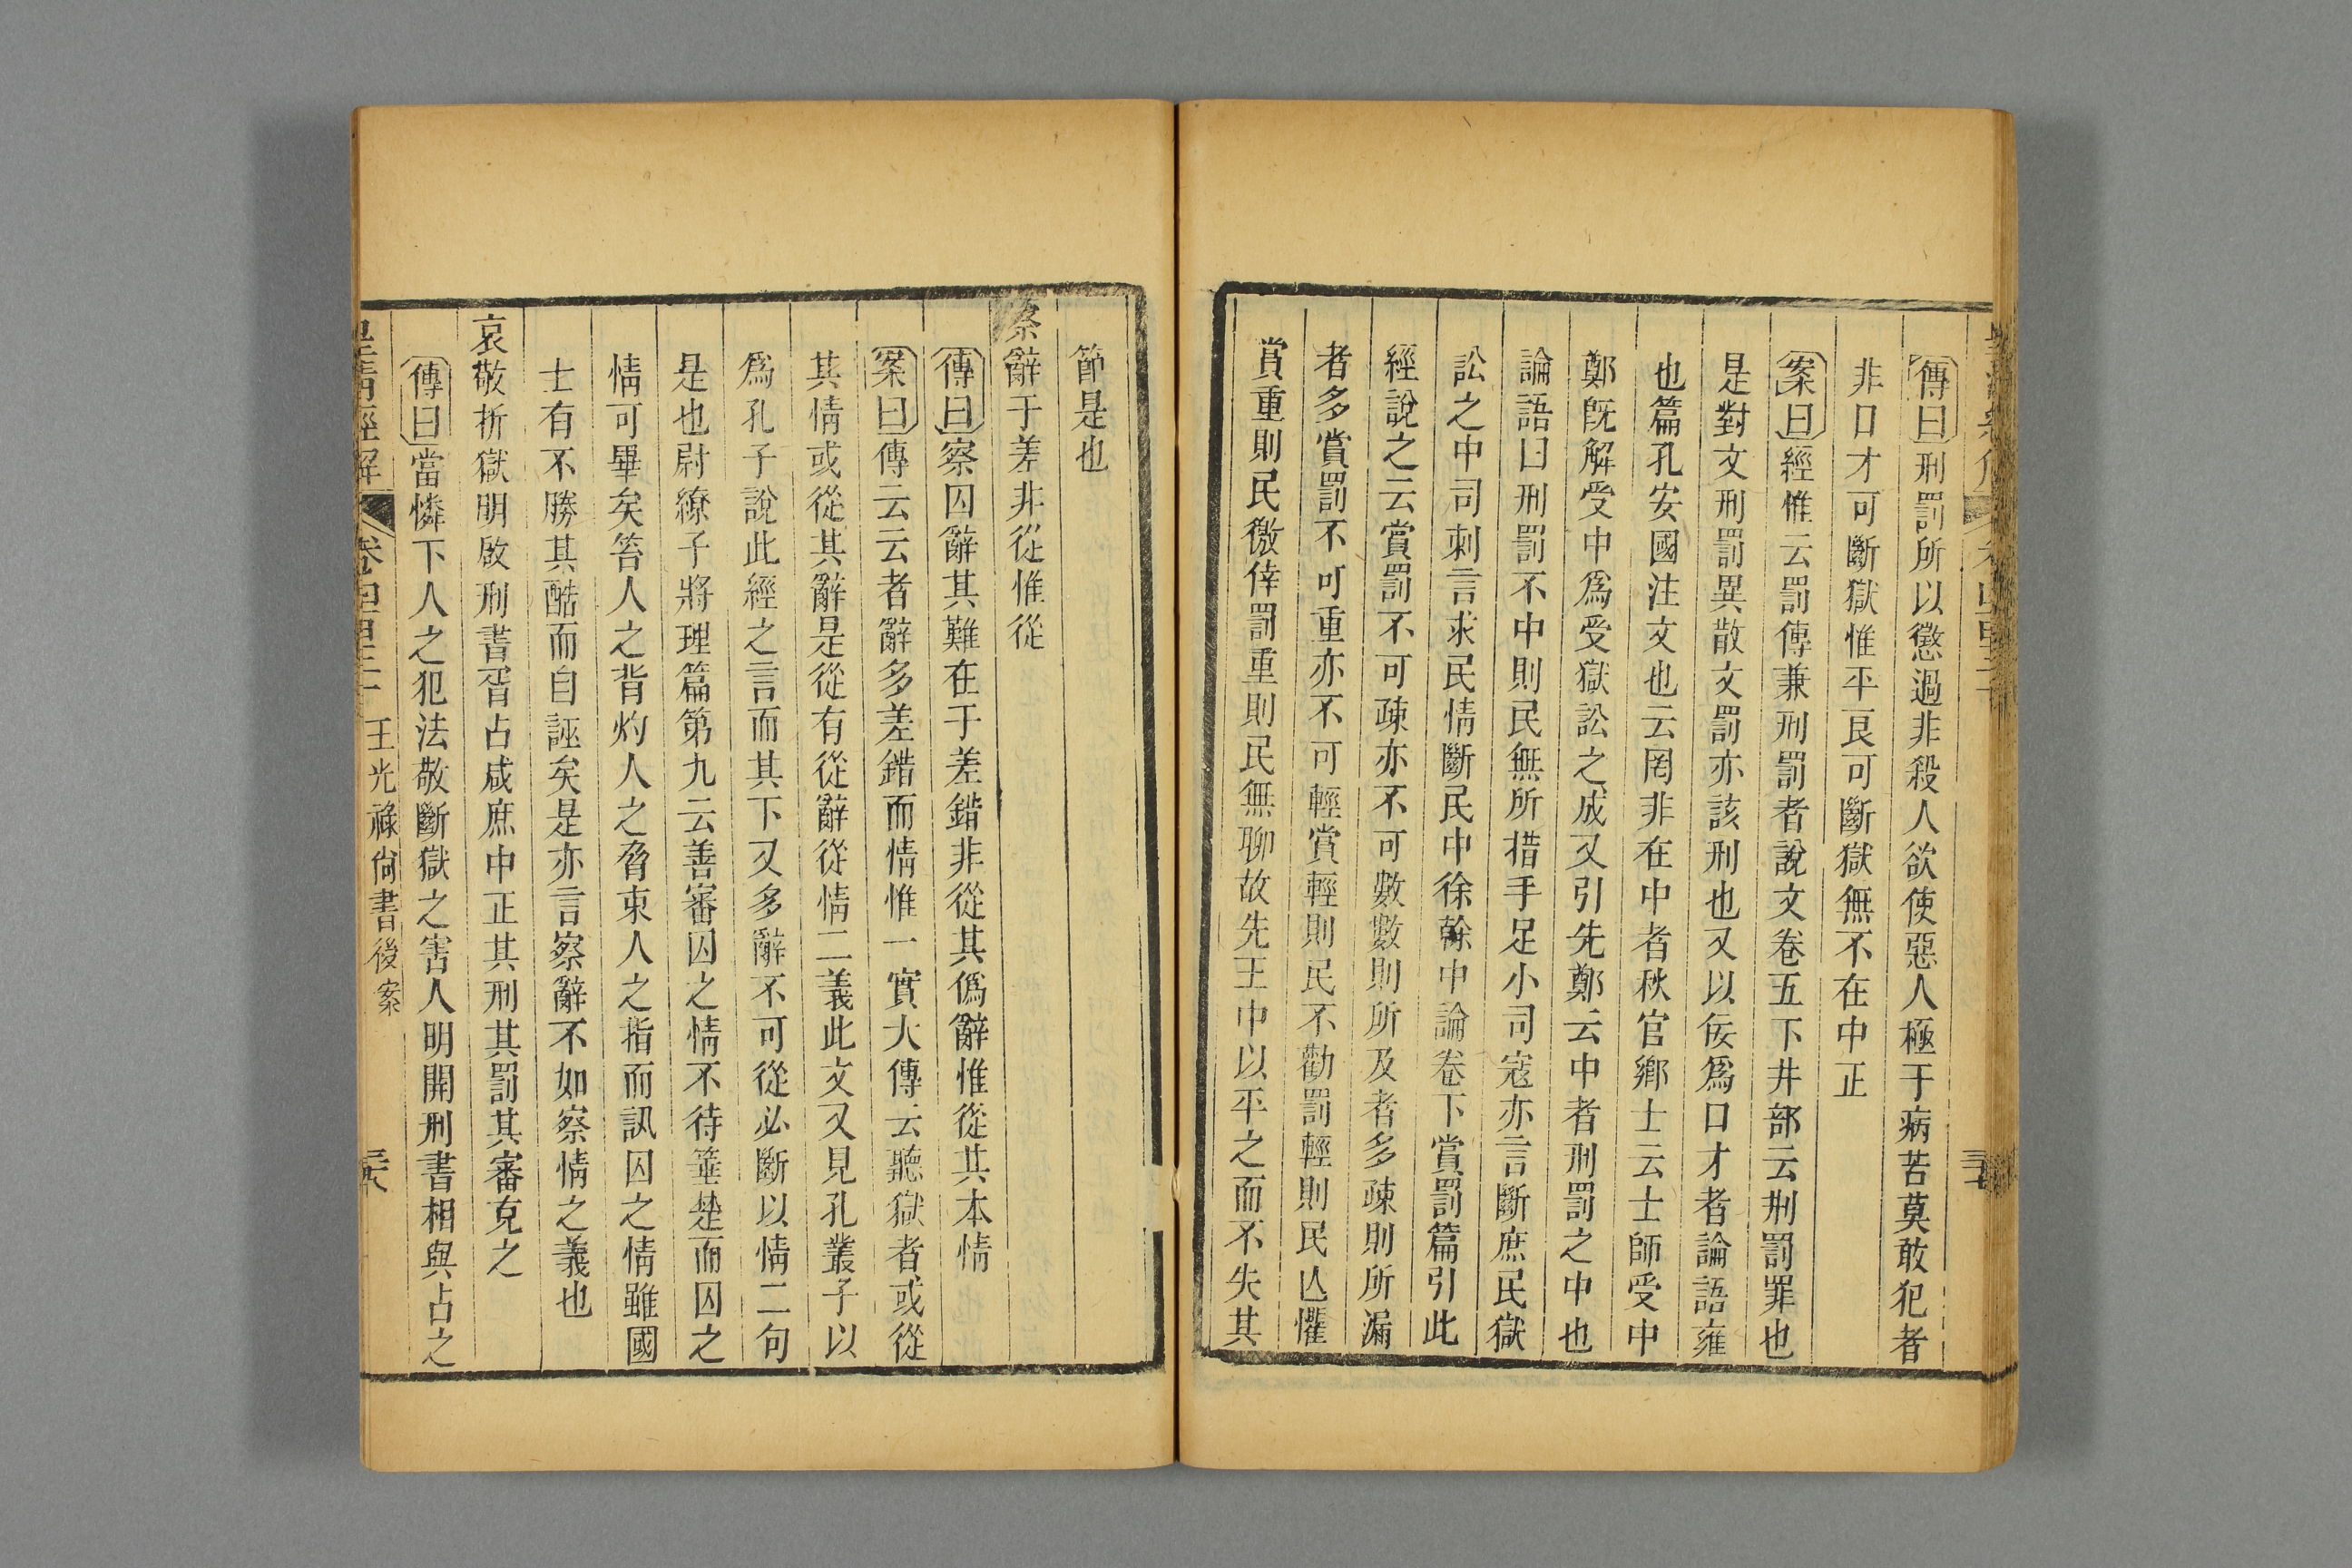 傳曰刑罰所以懲過非殺人欲使惡人極于病苦莫敢犯者
非口才可斷獄惟平良可斷獄無不在中正
案曰經惟云罰傳兼刑罰者說文卷五下井部云㓝罰罪也
是對文刑罰異散文罰亦該刑也又以佞爲口才者論語雍
也篇孔安國注文也云罔非在中者秋官鄉士云士師受中
鄭旣解受中爲受獄訟之成又引先鄭云中者刑罰之中也
論語曰刑罰不中則民無所措手足小司寇亦言斷庶民獄
訟之中司刺言求民情斷民中徐榦中論卷下賞罰篇引此
經說之云賞罰不可疎亦不可數數則所及者多疎則所漏
者多賞罰不可重亦不可輕賞輕則民不勸罰輕則民亾懼
賞重則民徼倖罰重則民無聊故先王中以平之而不失其
節是也
察辭于差非從惟從
傳曰察囚辭其難在于差錯非從其僞辭惟從其本情
案曰傳云云者辭多差錯而情惟一實大傳云聽獄者或從
其情或從其辭是從有從辭從情二義此文又見孔叢子以
爲孔子說此經之言而其下又多辭不可從必斷以情二句
是也尉繚子將理篇第九云善審囚之情不待箠楚而囚之
情可畢矣笞人之背灼人之脅束人之指而訊囚之情雖國
士有不勝其酷而自誣矣是亦言察辭不如察情之義也
哀敬折獄明啟刑書胥占咸庶中正其刑其罰其審克之
傳曰當憐下人之犯法敬斷獄之害人明開刑書相與占之
皇清經解 卷四百三十一 王光祿尚書後案